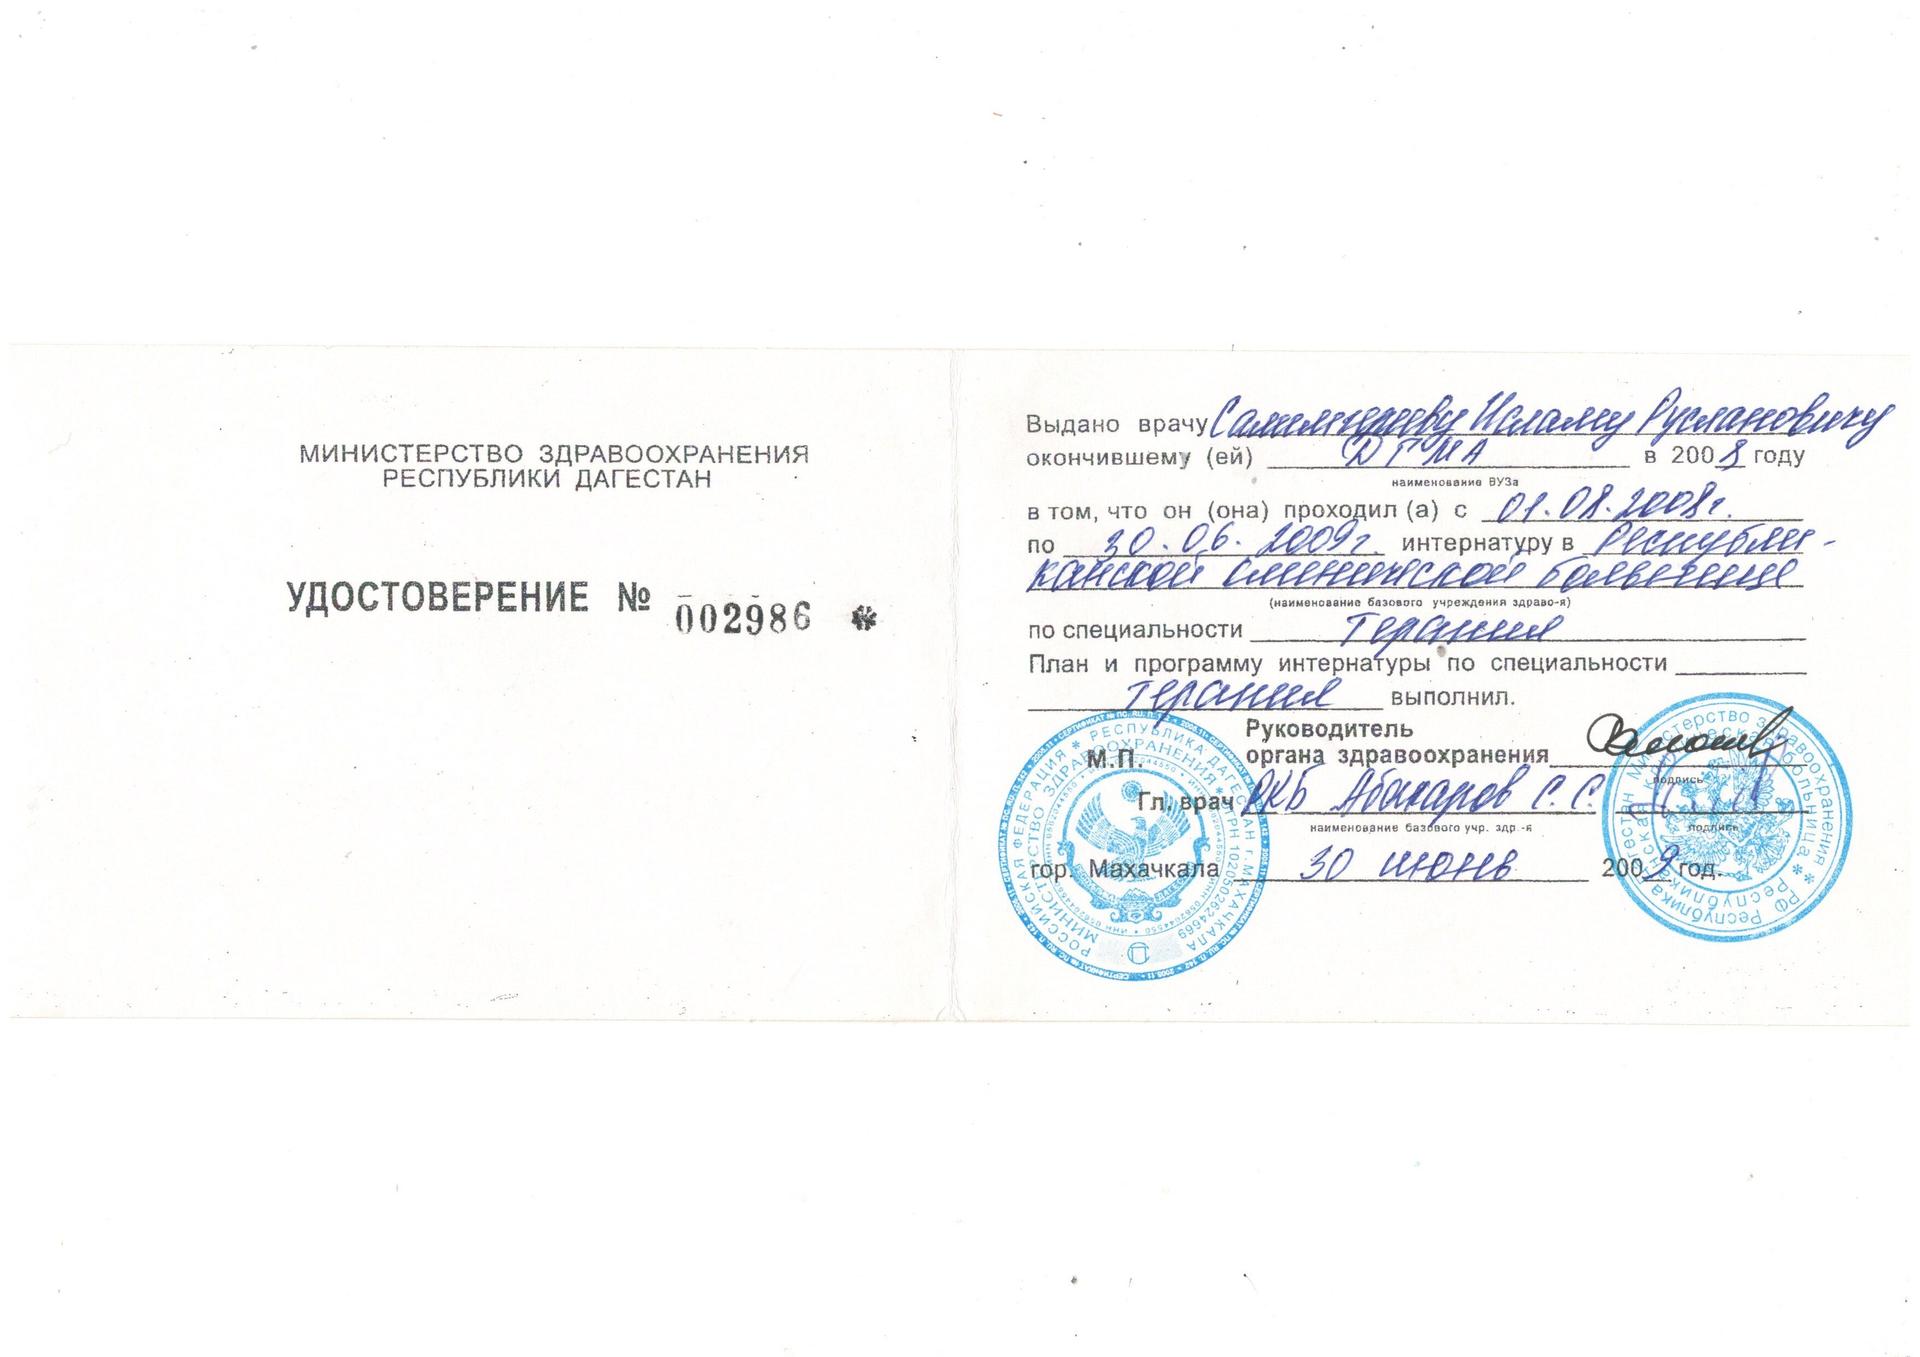 МИНИСТЕРСТВО ЗДРАВООХРАНЕНИЯ
РЕСПУБЛИКИ ДАГЕСТАН
УДОСТОВЕРЕНИЕ № 002986 *
Выдано врачу Исламу Руслановичу
окончившему (ей) ДГМА в 2008 году
наименование ВУЗа
в том, что он (она) проходил (а) с 01.08.2008г.
по 30.06.2009г. интернатуру в Республи-
канской клинической больнице
(наименование базового учреждения здраво-я)
по специальности Терапия
План и программу интернатуры по специальности
терапия выполнил.
Руководитель
органа здравоохранения
М.П.
подпись
Гл. врач РКБ Абакаров С. С.
наименование базового учр. здр.-я
подпись
гор. Махачкала 30 июнь 2009 год.
РОССИЙСКАЯ ФЕДЕРАЦИЯ * РЕСПУБЛИКА ДАГЕСТАН г. МАХАЧКАЛА
МИНИСТЕРСТВО ЗДРАВООХРАНЕНИЯ * ОГРН 1020502624669
ИНН 0562044550
Министерство здравоохранения * РФ Республика Дагестан